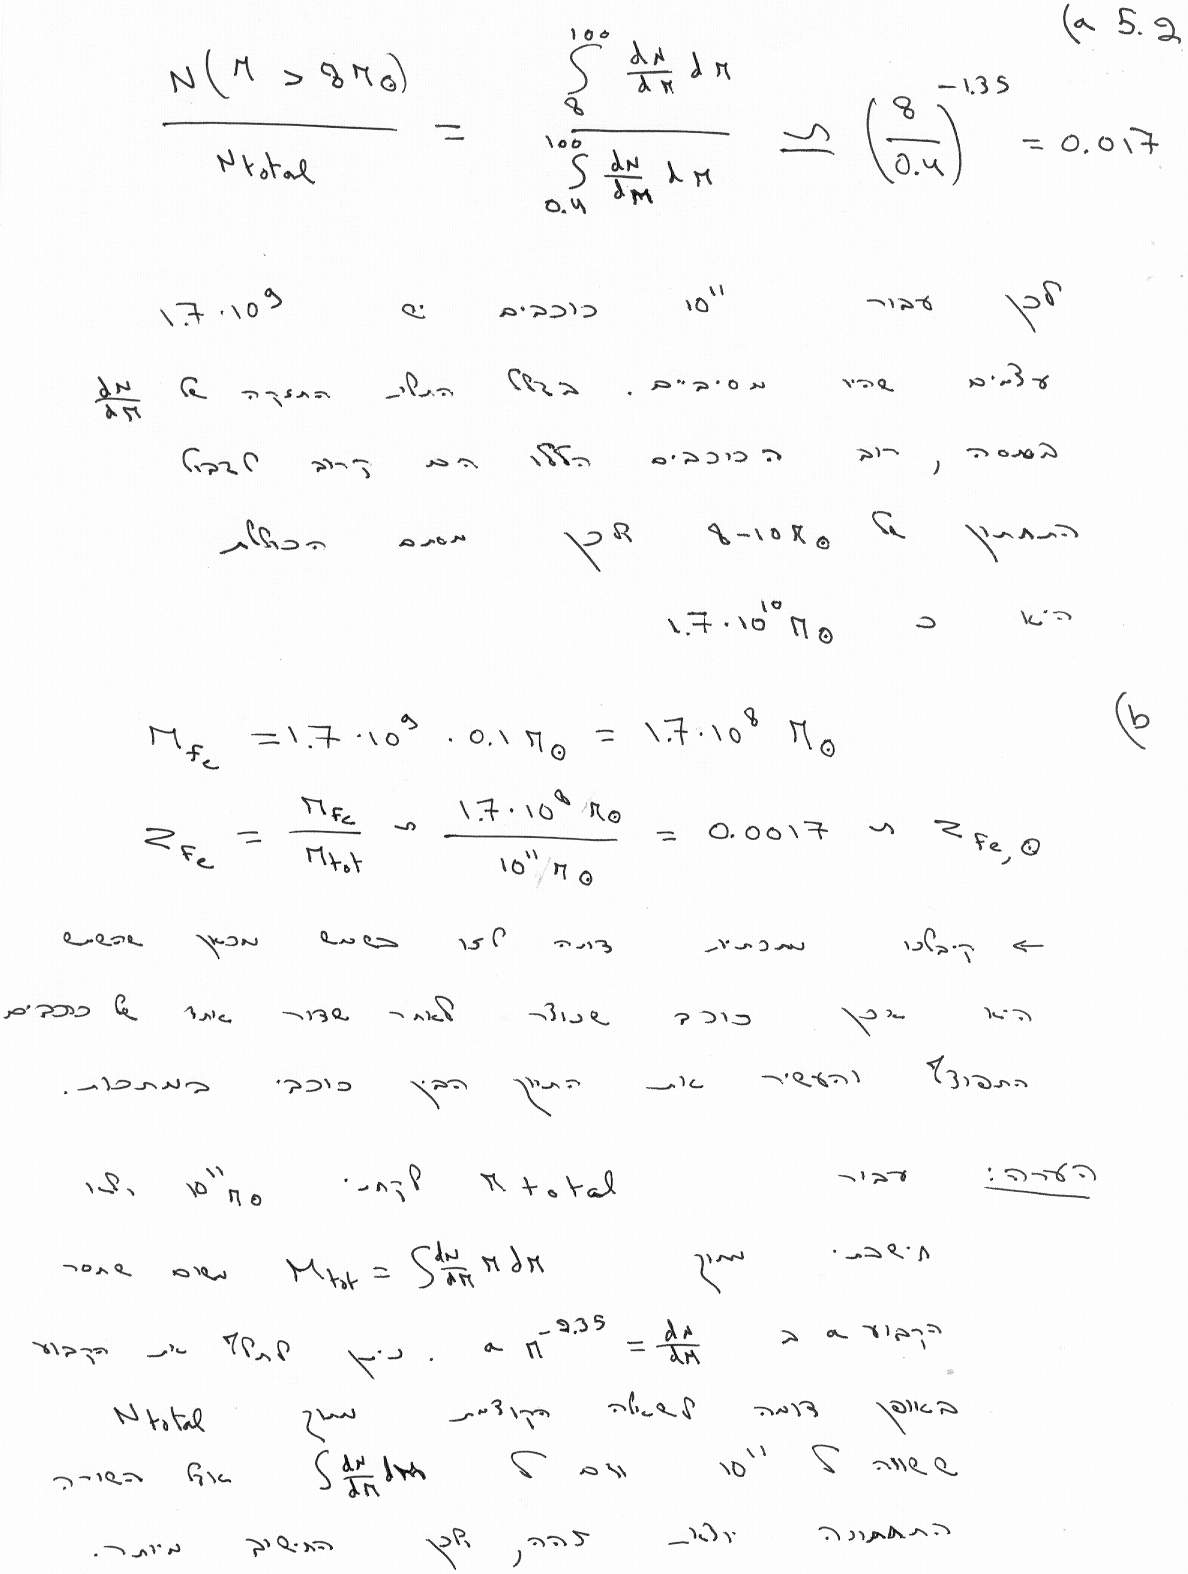 5.2 a)
N(M > 8M⊙) / Ntotal = ∫_8^100 dN/dM dM / ∫_0.4^100 dN/dM dM ≃ (8/0.4)^-1.35 = 0.017
לכן עבור 10^11 כוכבים יש 1.7·10^9
עצמים שהיו מסיביים. בגלל התלות החזקה של dN/dM
במסה, רוב הכוכבים הללו הם קרוב לגבול
התחתון של 8-10M⊙ ולכן מסתם הכוללת
היא כ 1.7·10^10 M⊙
b)
M_Fe = 1.7·10^9 · 0.1 M⊙ = 1.7·10^8 M⊙
Z_Fe = M_Fe / M_tot ~ 1.7·10^8 M⊙ / 10^11 M⊙ = 0.0017 ~ Z_Fe,⊙
← קיבלנו מתכתיות דומה לזו בשמש מכאן שהשמש
היא אכן כוכב שנוצר לאחר שדור אחד של כוכבים
התפוצץ והעשיר את התווך הבין כוכבי במתכות.
הערה: עבור M total לקחתי 10^11 M⊙ ולא
חישבתי מתוך M_tot = ∫ dN/dM M dM משום שחסר
הקבוע a ב dN/dM = a M^-2.35 . ניתן לחלץ את הקבוע
באופן דומה לשאלה הקודמת מתוך Ntotal
ששווה ל 10^11 וגם ל ∫ dN/dM dM אבל השורה
התחתונה יוצאת זהה, ולכן החישוב מיותר.